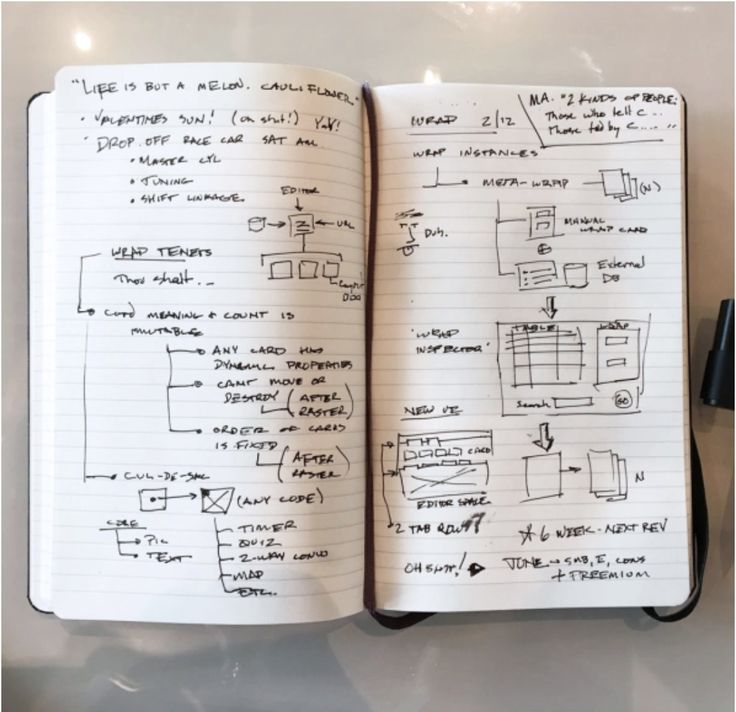 "LIFE IS BUT A MELON. CAULIFLOWER"
• VALENTINES SUN! (oh shit!) YAY!
• DROP OFF RACE CAR SAT AM.
• MASTER CYL
• TUNING
• SHIFT LINKAGE
EDITOR
URL
WRAP TENETS
Thou shalt...
Card MEANING + COUNT IS
MUTABLE
ANY CARD HAS
DYNAMIC PROPERTIES
CAN'T MOVE OR
DESTROY (AFTER
RASTER)
ORDER OF CARDS
IS FIXED
(AFTER
RASTER)
CUL-DE-SAC
(ANY CODE)
CORE
PIC
TEXT
TIMER
QUIZ
2-WAY CONVO
MAP
ETC.
WRAP 2/12
MA. "2 KINDS OF PEOPLE:
Those who tell C...
Those told by C...."
WRAP INSTANCES
META-WRAP
(N)
Duh.
MANUAL
WRAP CARD
External
DB
'WRAP
INSPECTOR'
TABLE
WRAP
Search
GO
NEW VE
CARD
EDITOR SPACE
2 TAB ROWS
N
☆ 6 WEEK - NEXT REV
OH SHIT!
JUNE → SMB, E, CONS
+ FREEMIUM